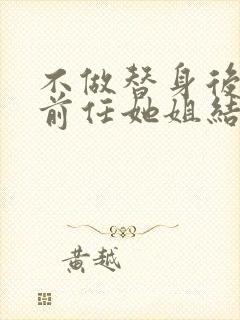 不做替身後
前任她姐結
黃越